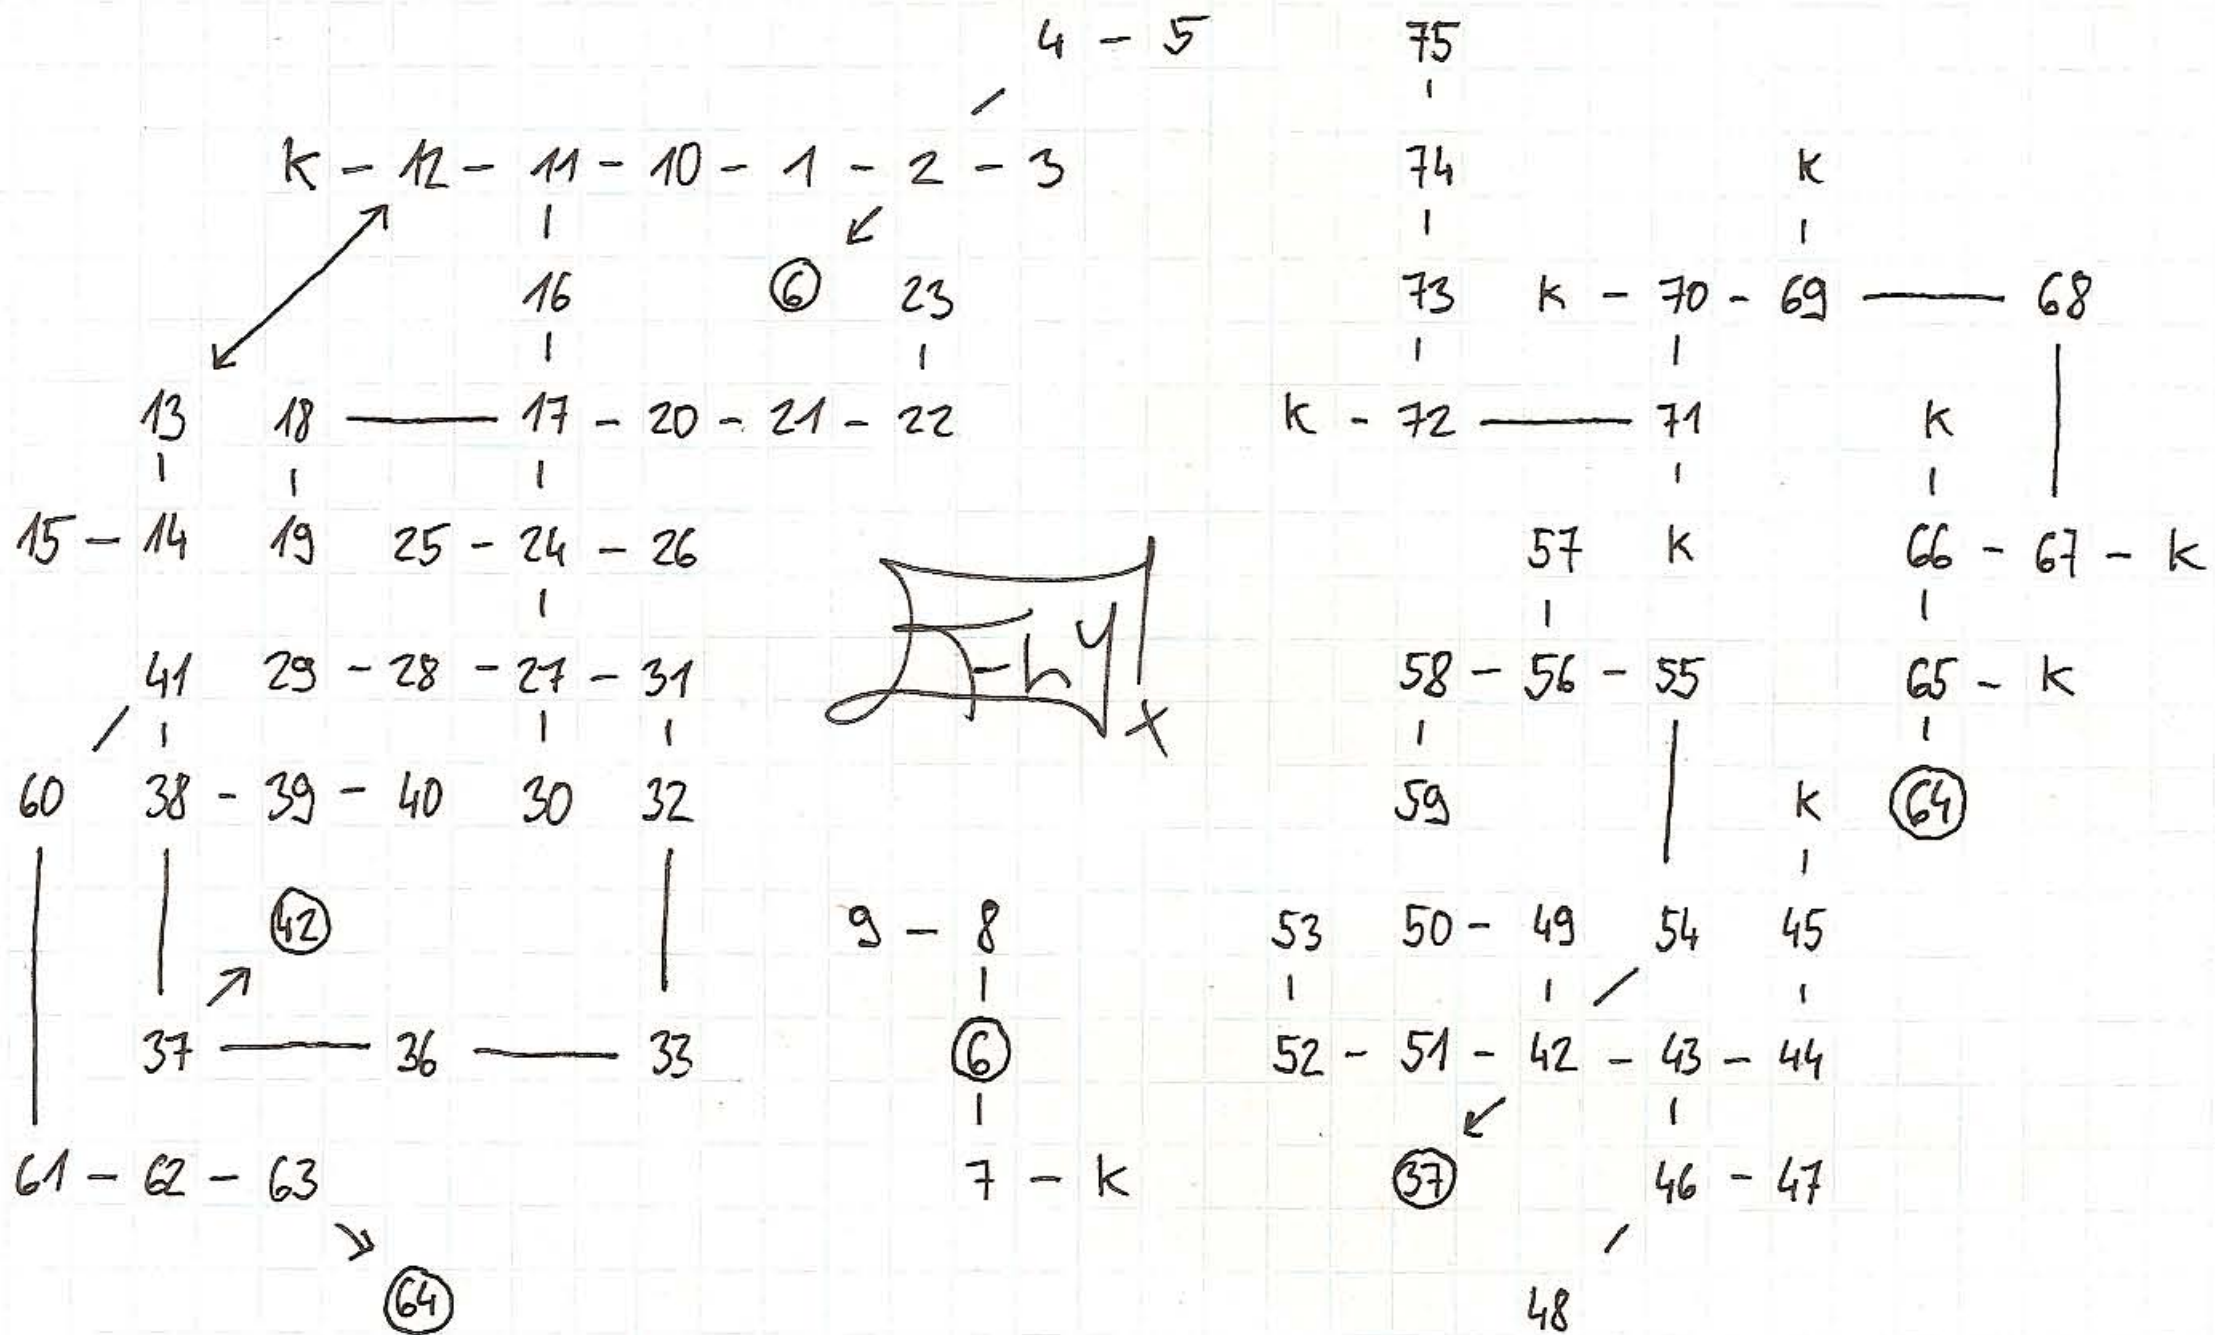 4 - 5 75
K - 12 - 11 - 10 - 1 - 2 - 3 74 K
16 6 23 73 K - 70 - 69 — 68
13 18 — 17 - 20 - 21 - 22 K - 72 — 71 K
15 - 14 19 25 - 24 - 26 57 K 66 - 67 - K
41 29 - 28 - 27 - 31 58 - 56 - 55 65 - K
60 38 - 39 - 40 30 32 59 K 64
42 9 - 8 53 50 - 49 54 45
37 — 36 — 33 6 52 - 51 - 42 - 43 - 44
61 - 62 - 63 7 - K 37 46 - 47
64 48